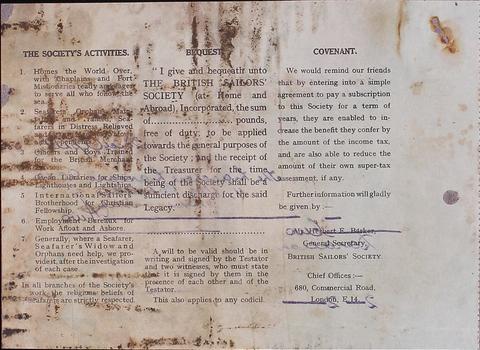 THE SOCIETY'S ACTIVITIES.
1. Homes the World Over,
with Chaplains and Port
Missionaries ready and eager
to serve all who follow the
sea.
2.
farers in Distress Relieved
3. Officers and Boys Trained
for the British Merchant
4. Ocean Libraries for Ships,
Lighthouses and Lightships.
5. International
Brotherhood for Christian
Fellowship.
6. Employment Bureaux for
Work Afloat and Ashore.
7. Generally, where a Seafarer,
Seafarer's Widow and
Orphans need help, we pro-
vide it, after the investigation
of each case.
In all branches of the Society's
work the religious beliefs of
Seafarers are strictly respected.
BEQUEST.
"I give and bequeath unto
THE BRITISH SAILORS'
SOCIETY (at Home and
Abroad), Incorporated, the sum
of.............................. pounds,
free of duty; to be applied
towards the general purposes of
the Society; and the receipt of
the Treasurer for the time
being of the Society shall be a
sufficient discharge for the said
Legacy.
A will to be valid should be in
writing and signed by the Testator
and two witnesses, who must state
that it is signed by them in the
presence of each other and of the
Testator.
This also applies to any codicil.
COVENANT.
We would remind our friends
that by entering into a simple
agreement to pay a subscription
to this Society for a term of
years, they are enabled to in-
crease the benefit they confer by
the amount of the income tax,
and are also able to reduce the
amount of their own super-tax
assessment, if any.
Further information will gladly
be given by :—
Herbert E. Barker,
General Secretary
BRITISH SAILORS' SOCIETY
Chief Offices :—
680, Commercial Road,
London, E.14.